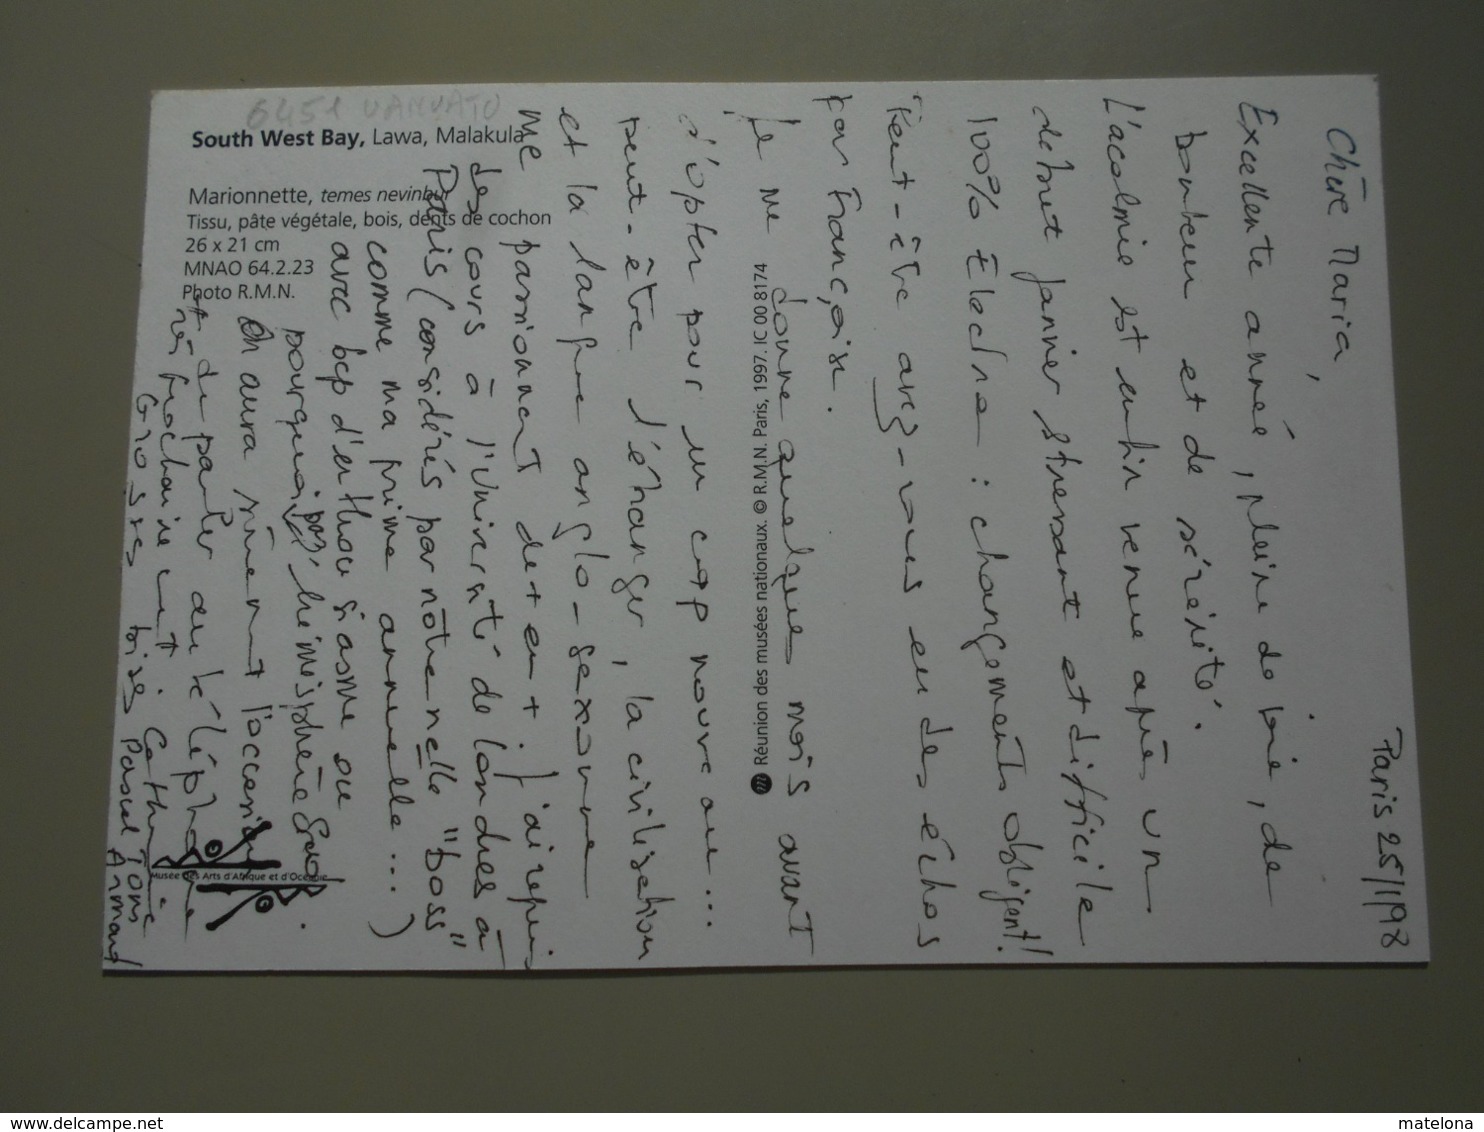 6451 VANUATU
South West Bay, Lawa, Malakula
Marionnette, temes nevinbur
Tissu, pâte végétale, bois, dents de cochon
26 x 21 cm
MNAO 64.2.23
Photo R.M.N.
Réunion des musées nationaux. © R.M.N. Paris, 1997. IC 00 8174
Musée des Arts d'Afrique et d'Océanie
Paris 25/1/98
Chère Maria,
Excellente année, pleine de joie, de
bonheur et de sérénité.
L'acalmie est enfin venue après un
début janvier stressant et difficile
100% Electre : changements obligent!
Peut-être avez-vous eu des échos
par Françoise.
Je me donne quelques mois avant
d'opter pour un cap nouveau...
peut-être l'étranger, la civilisation
et la langue anglo-saxonne
me passionnent de + en +. J'ai repris
des cours à l'Université de Londres à
Paris (considérés par notre nelle "boss"
comme ma prime annuelle...)
avec bcp d'enthousiasme ou
pourquoi pas l'hémisphère Sud.
On aura sûrement l'occasion
d'en parler au téléphone
très prochainement
Grosses bises Catherine
Pascal Toms
Arnaud
www.delcampe.net
matelona